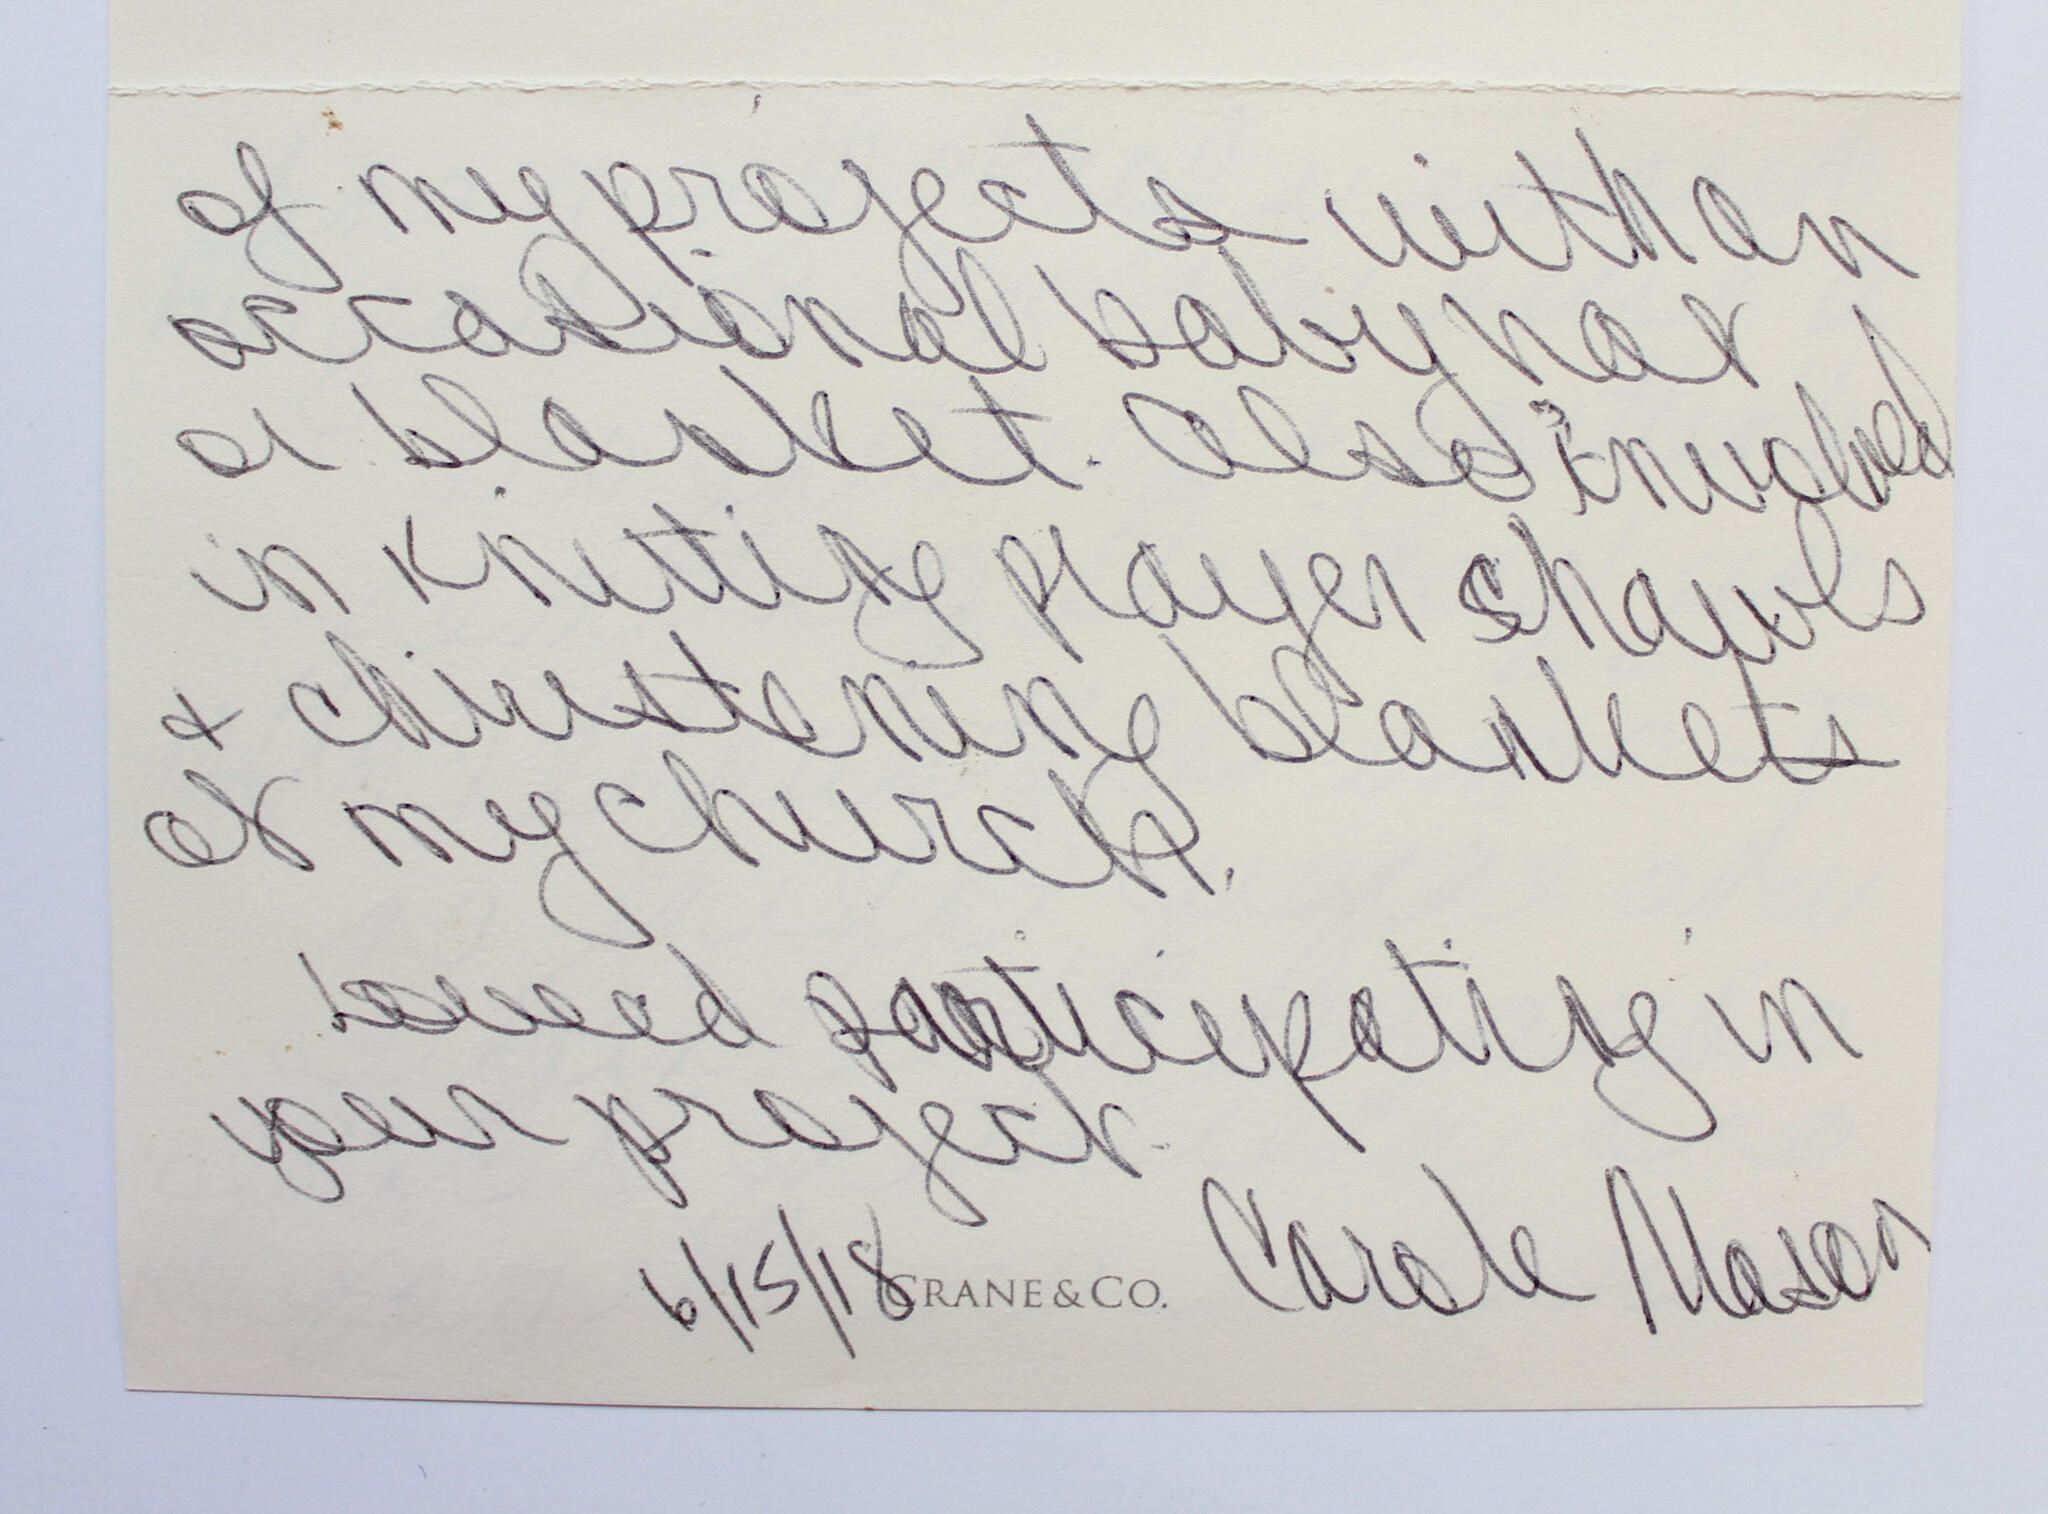 of my projects with an
occasional baby hat
or blanket. Also involved
in knitting prayer shawls
& christening blankets
at my church.
Loved participating in
your project.
6/15/18 Carole Mason
CRANE & CO.